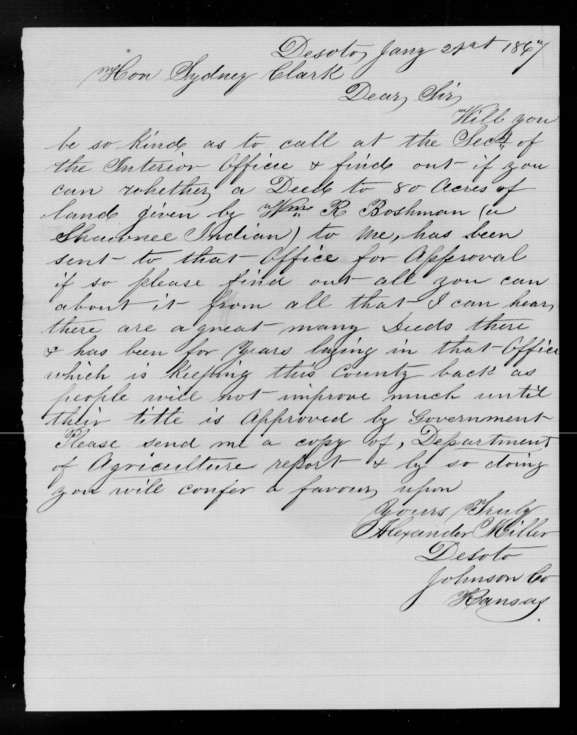 Desoto, Jany 21st 1867
Hon Sydney Clark
Dear, Sir,
Will you
be so kind as to call at the Secty of
the Interior Office & find out if you
can whether a Deed to 80 Acres of
land given by Wm R Boshman (a
Shawnee Indian) to me, has been
sent to that Office for Approval
if so please find out all you can
about it from all that I can hear,
there are a great many Deeds there
& has been for Years laying in that Office
which is Keeping this County back as
people will not improve much until
their title is Approved by Government
Please send me a copy of, Department
of Agriculture report & by so doing
you will confer a favour, upon
Yours Truly
Alexander Miller
Desoto
Johnson Co
Kansas.